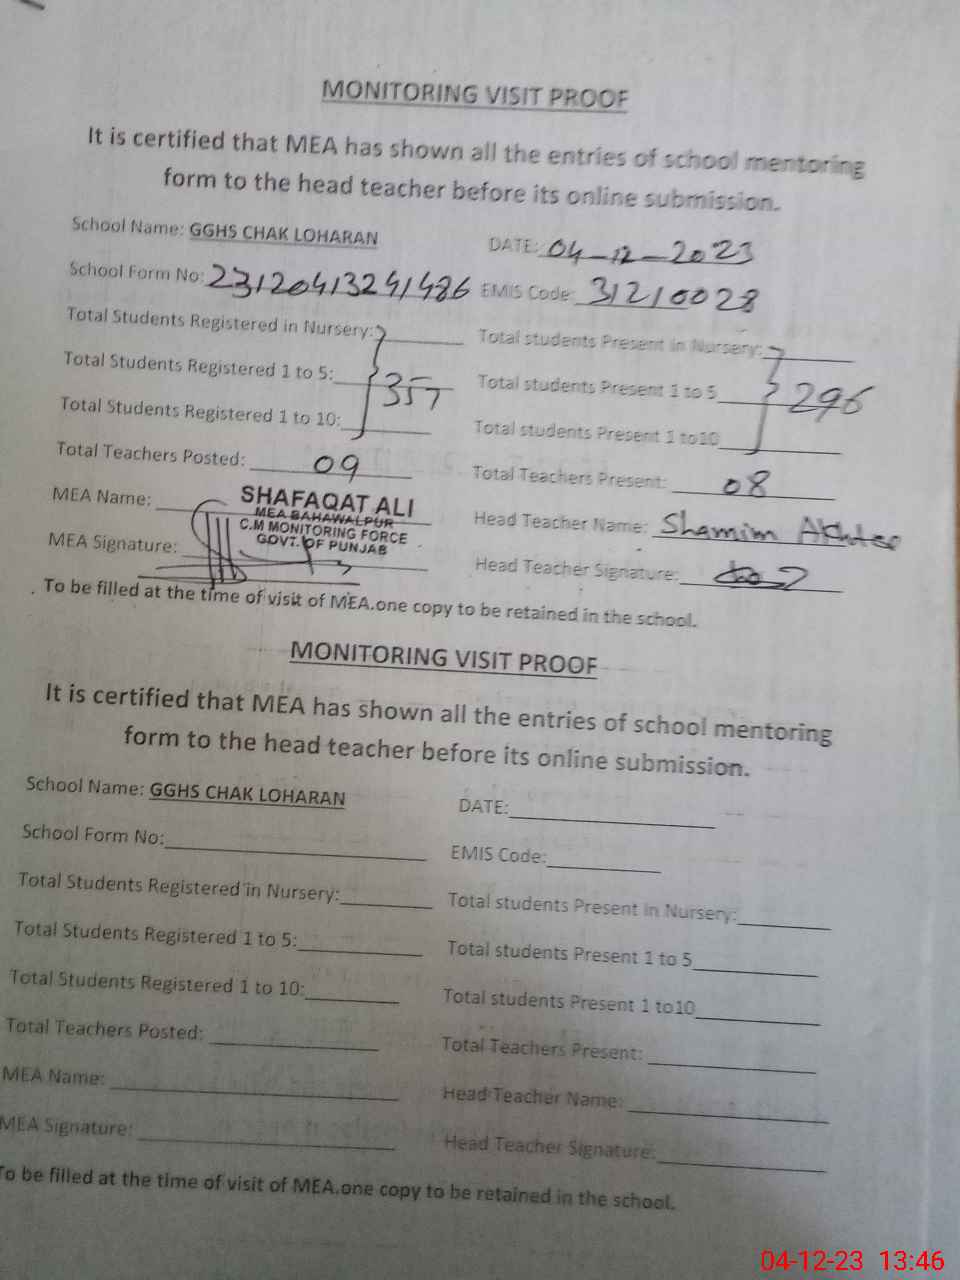 MONITORING VISIT PROOF
It is certified that MEA has shown all the entries of school mentoring
form to the head teacher before its online submission.
School Name: GGHS CHAK LOHARAN DATE: 04-12-2023
School Form No: 23120413241486 EMIS Code: 31210028
Total Students Registered in Nursery: Total students Present in Nursery:
Total Students Registered 1 to 5: 357 Total students Present 1 to 5 296
Total Students Registered 1 to 10: Total students Present 1 to10
Total Teachers Posted: 09 Total Teachers Present: 08
MEA Name: SHAFAQAT ALI Head Teacher Name: Shamim Akhter
MEA BAHAWALPUR
C.M MONITORING FORCE
GOVT. OF PUNJAB
MEA Signature: Head Teacher Signature:
To be filled at the time of visit of MEA.one copy to be retained in the school.
MONITORING VISIT PROOF
It is certified that MEA has shown all the entries of school mentoring
form to the head teacher before its online submission.
School Name: GGHS CHAK LOHARAN DATE:
School Form No: EMIS Code:
Total Students Registered in Nursery: Total students Present in Nursery:
Total Students Registered 1 to 5: Total students Present 1 to 5
Total Students Registered 1 to 10: Total students Present 1 to10
Total Teachers Posted: Total Teachers Present:
MEA Name: Head Teacher Name:
MEA Signature: Head Teacher Signature:
To be filled at the time of visit of MEA.one copy to be retained in the school.
04-12-23 13:46